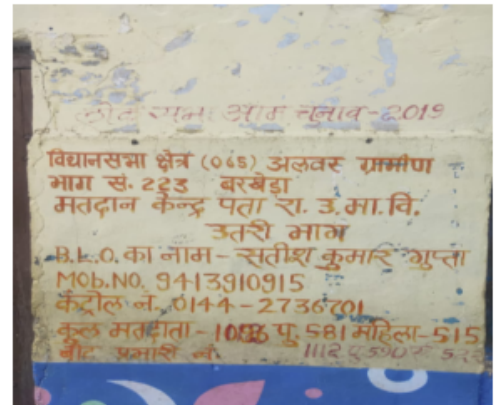 लोक सभा आम चुनाव-2019
विधानसभा क्षेत्र (065) अलवर ग्रामीण
भाग सं. 223 बरखेड़ा
मतदान केन्द्र पता रा. उ. मा. वि.
उतरी भाग
B.L.O. का नाम - सतीश कुमार गुप्ता
MOb.NO. 9413910915
कंट्रोल नं. 0144-2736701
कुल मतदाता - पु. 581 महिला-515
बीट प्रभारी नं. 1112